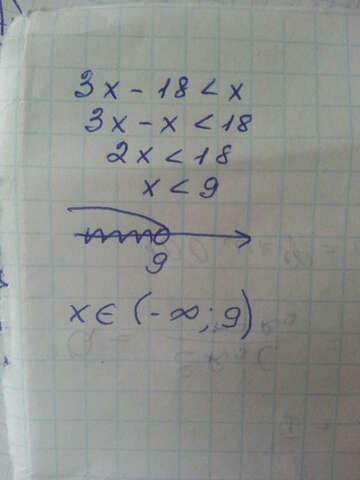 3x - 18 < x
3x - x < 18
2x < 18
x < 9
9
x ∈ (-∞; 9)